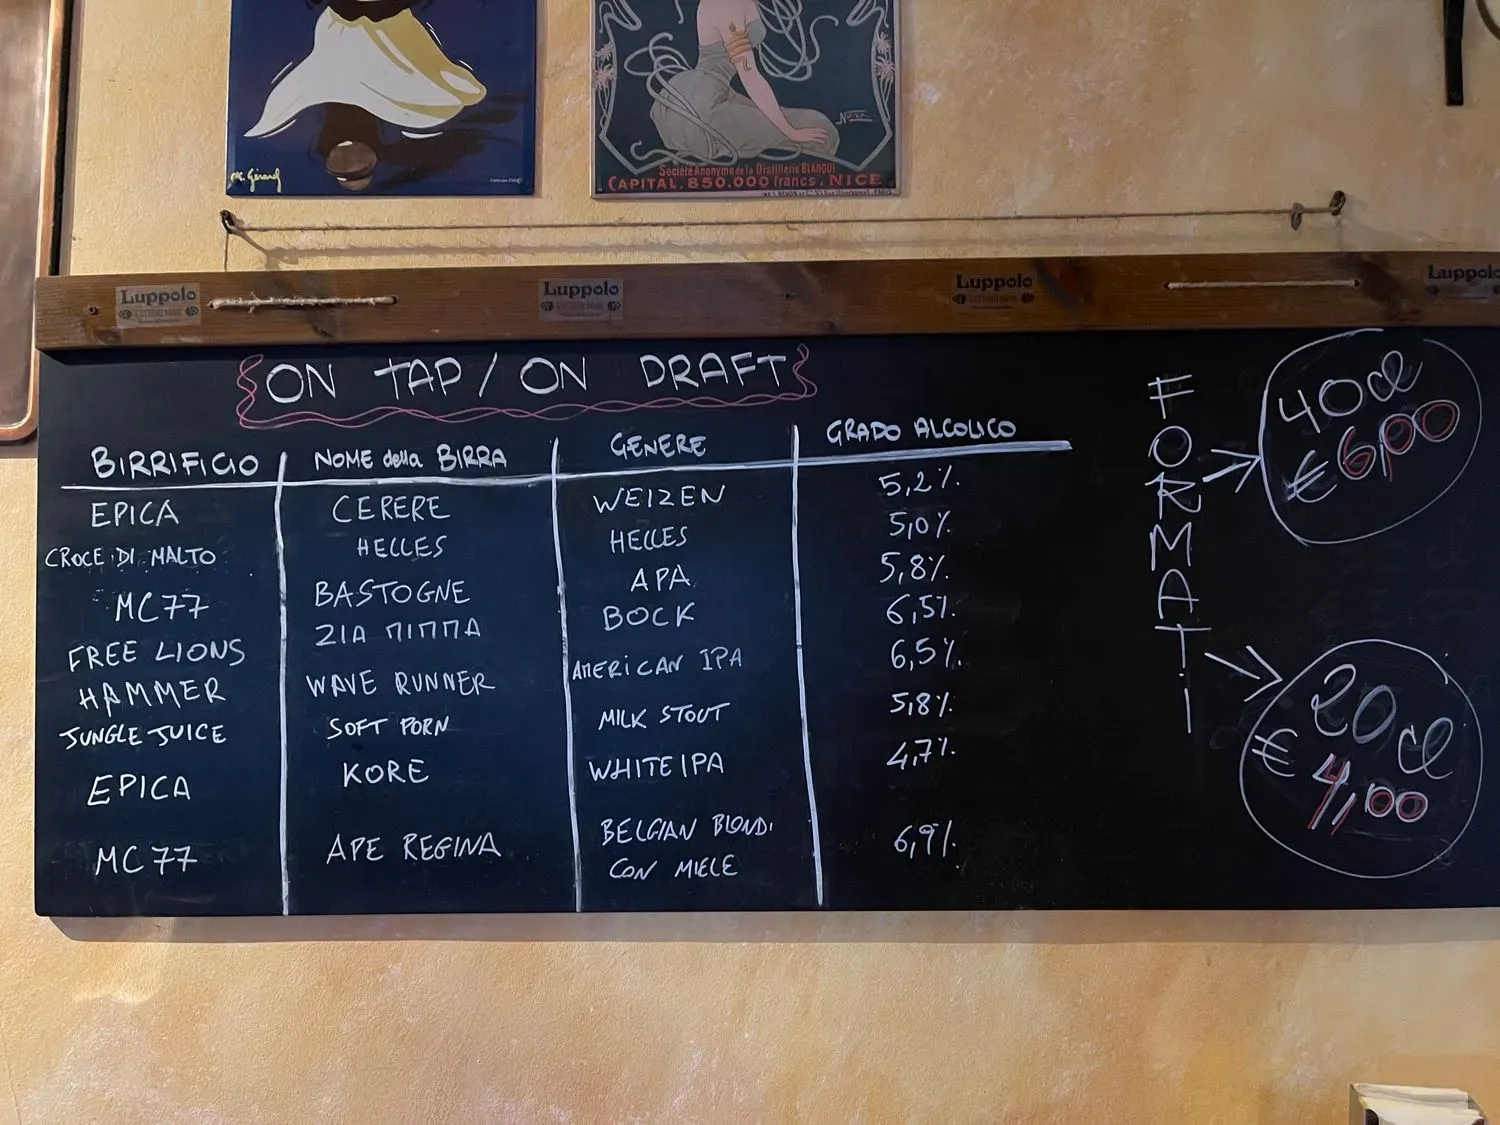 Société Anonyme de la Distillerie BLANQUI
CAPITAL. 850.000 francs. NICE
Luppolo
Luppolo
Luppolo
Luppolo
ON TAP / ON DRAFT
BIRRIFICIO NOME della BIRRA GENERE GRADO ALCOLICO
EPICA CERERE WEIZEN 5,2%
CROCE DI MALTO HELLES HELLES 5,0%
MC77 BASTOGNE APA 5,8%
FREE LIONS ZIA ПIПΠA BOCK 6,5%
HAMMER WAVE RUNNER AMERICAN IPA 6,5%
JUNGLE JUICE SOFT PORN MILK STOUT 5,8%
EPICA KORE WHITE IPA 4,7%
MC77 APE REGINA BELGIAN BLOND 6,9%
CON MIELE
FORMATI
40cl
€ 6,00
20cl
€ 4,00